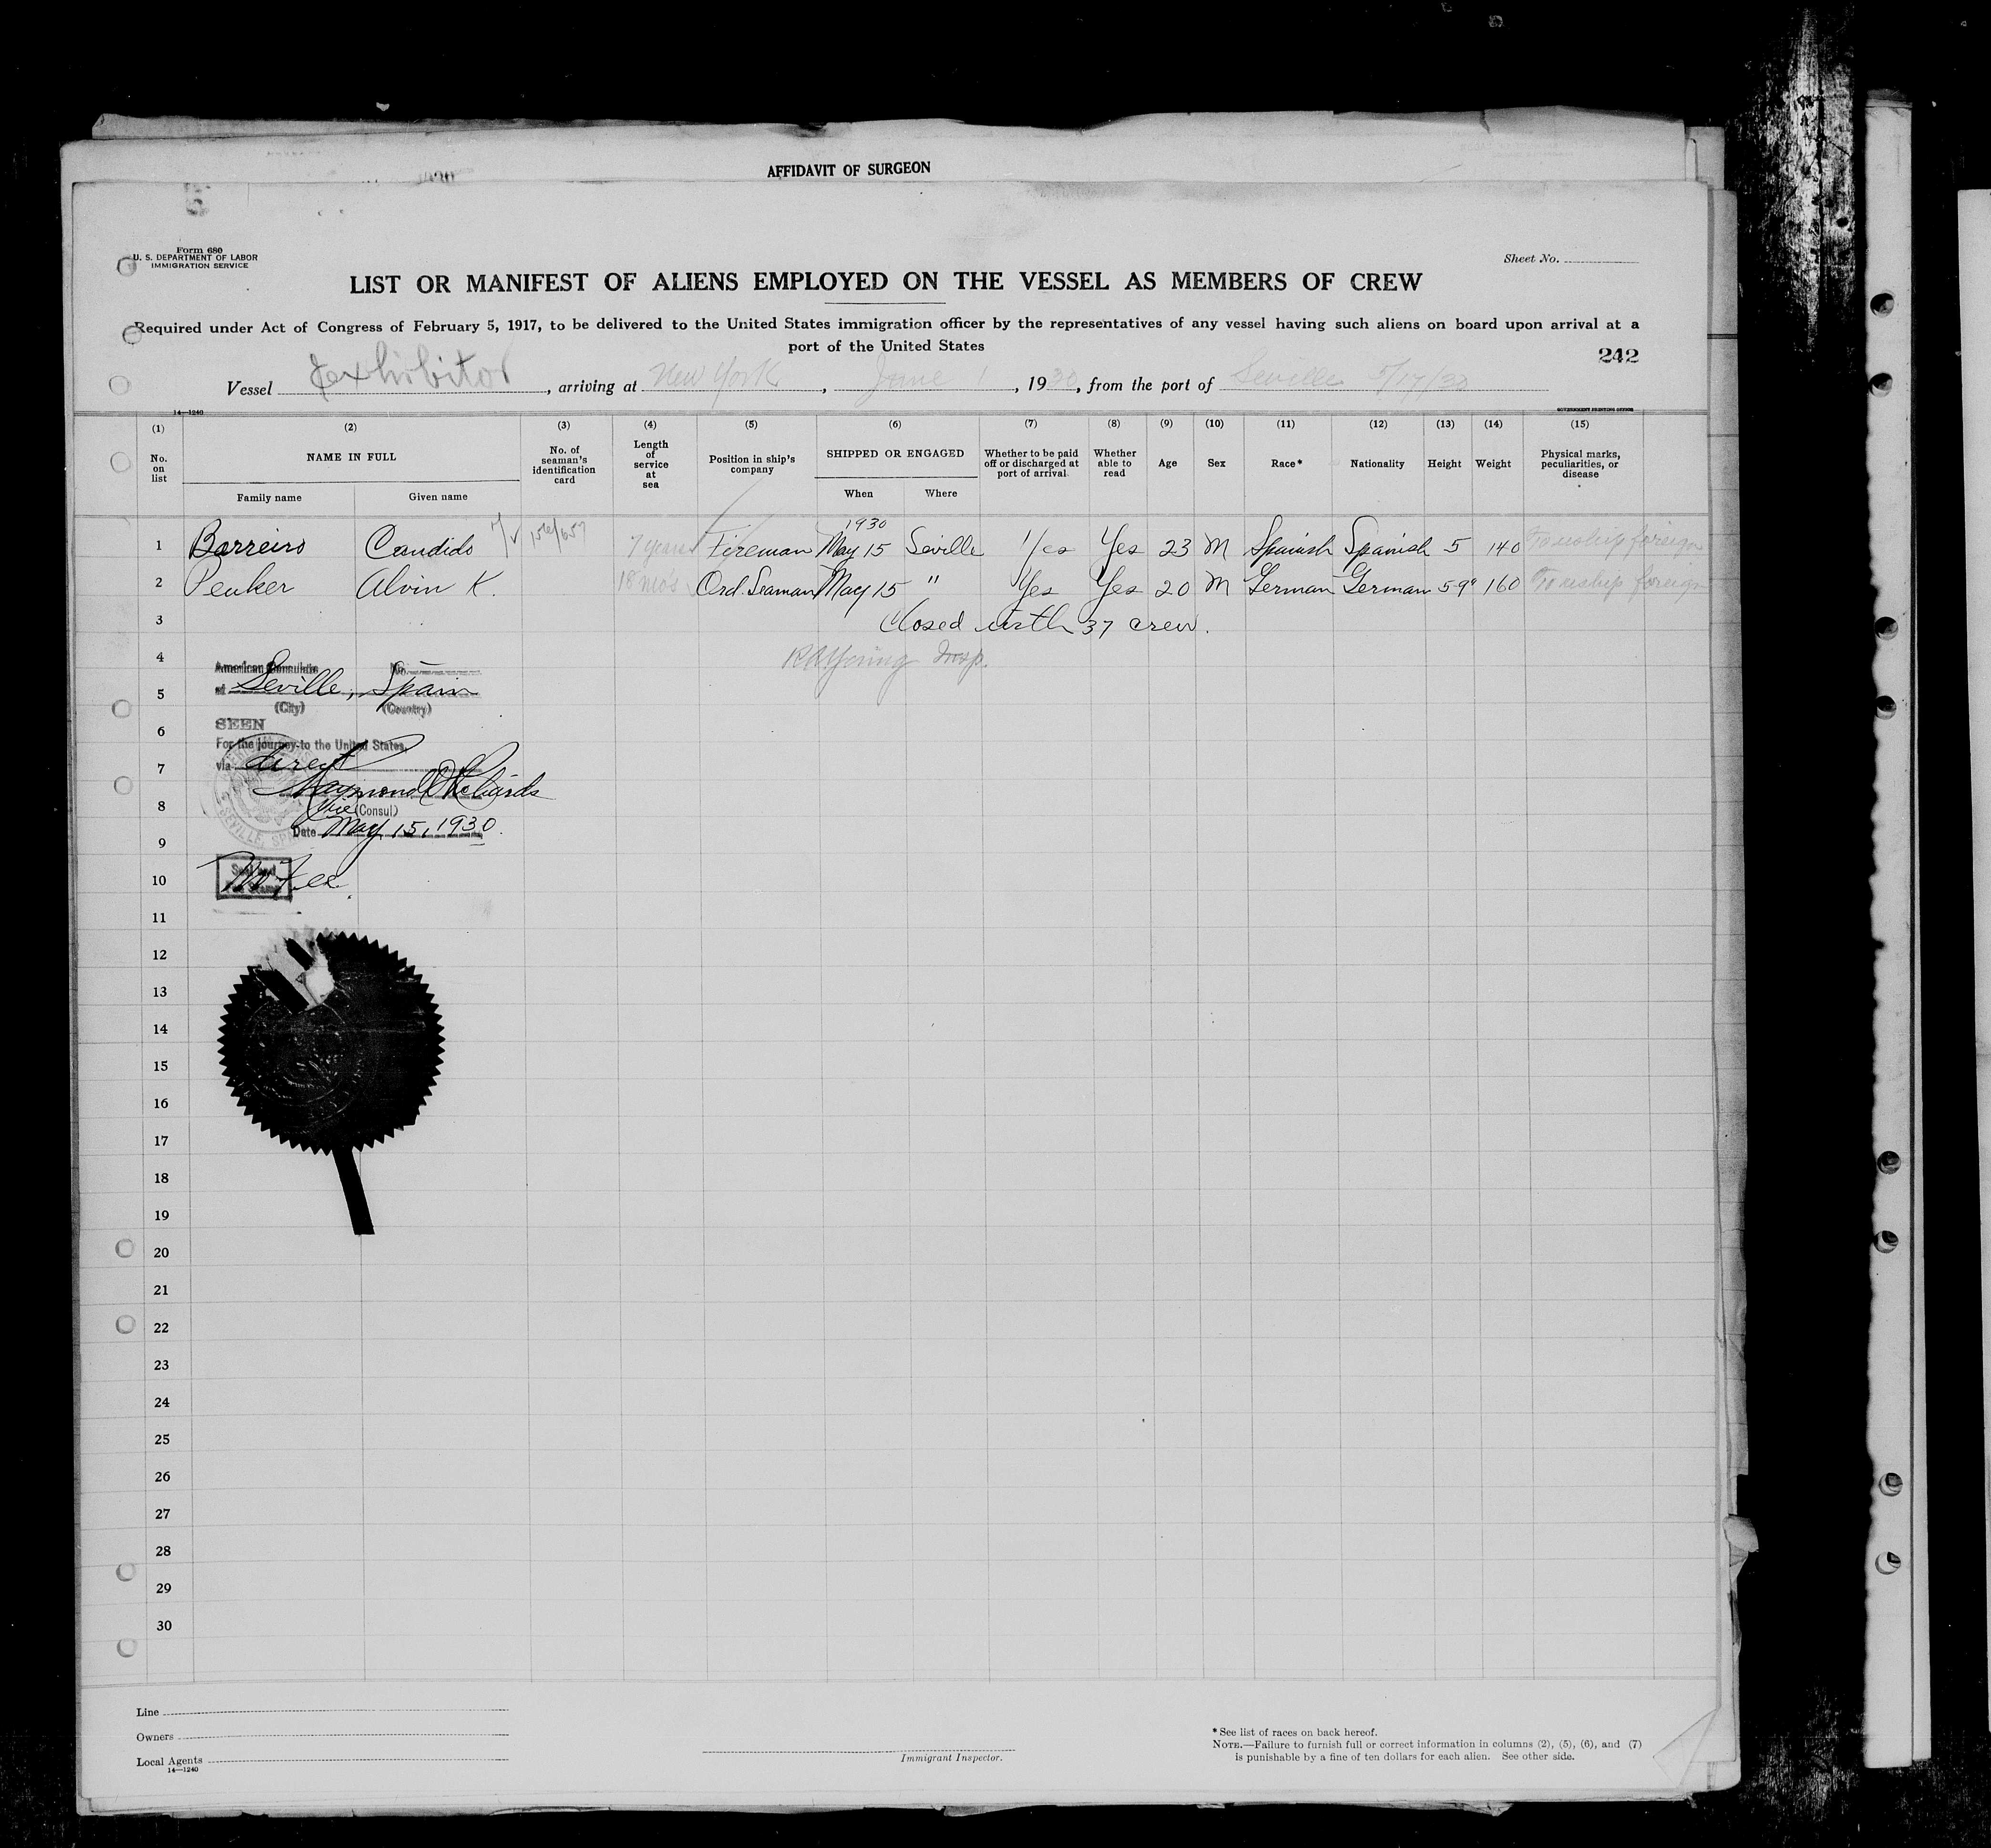 AFFIDAVIT OF SURGEON
Form 680
U. S. DEPARTMENT OF LABOR
IMMIGRATION SERVICE
Sheet No.
LIST OR MANIFEST OF ALIENS EMPLOYED ON THE VESSEL AS MEMBERS OF CREW
Required under Act of Congress of February 5, 1917, to be delivered to the United States immigration officer by the representatives of any vessel having such aliens on board upon arrival at a
port of the United States
242
Vessel Exhibitor, arriving at New York, June 1, 1930, from the port of Seville 5/17/30
14—1240
GOVERNMENT PRINTING OFFICE
(1) (2) (3) (4) (5) (6) (7) (8) (9) (10) (11) (12) (13) (14) (15)
No. on list NAME IN FULL No. of seaman's identification card Length of service at sea Position in ship's company SHIPPED OR ENGAGED Whether to be paid off or discharged at port of arrival Whether able to read Age Sex Race* Nationality Height Weight Physical marks, peculiarities, or disease
Family name Given name When Where
1930
1 Barreiro Candido 156/657 7 years Fireman May 15 Seville Yes Yes 23 M Spanish Spanish 5 140 To reship foreign
2 Penker Alvin K. 18 mo's Ord. Seaman May 15 " Yes Yes 20 M German German 5-9" 160 To reship foreign
3 Closed with 37 crew.
4 Insp.
American Consulate No.
5 at Seville, Spain
(City) (Country)
6 SEEN
For the journey to the United States,
7 via direct
Raymond Richards
8 Vice (Consul)
Date May 15, 1930.
9
10 No fee.
11
12
13
14
15
16
17
18
19
20
21
22
23
24
25
26
27
28
29
30
Line
Owners
Local Agents
14—1240
Immigrant Inspector.
* See list of races on back hereof.
NOTE.—Failure to furnish full or correct information in columns (2), (5), (6), and (7)
is punishable by a fine of ten dollars for each alien. See other side.